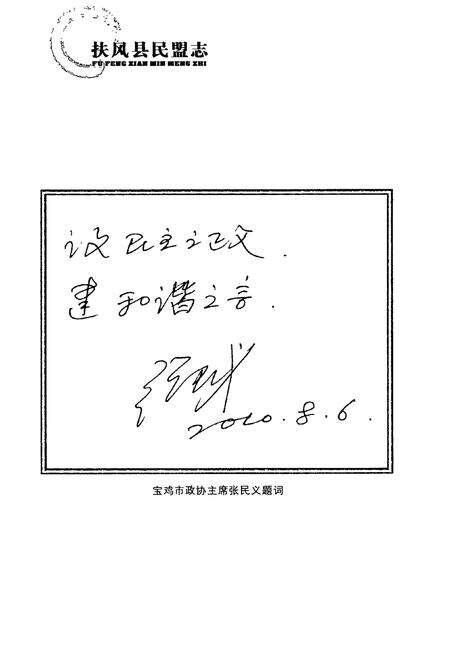 扶风县民盟志
FU FENG XIAN MIN MENG ZHI
议民主之政.
建和谐之言.
张民义
2010.8.6.
宝鸡市政协主席张民义题词